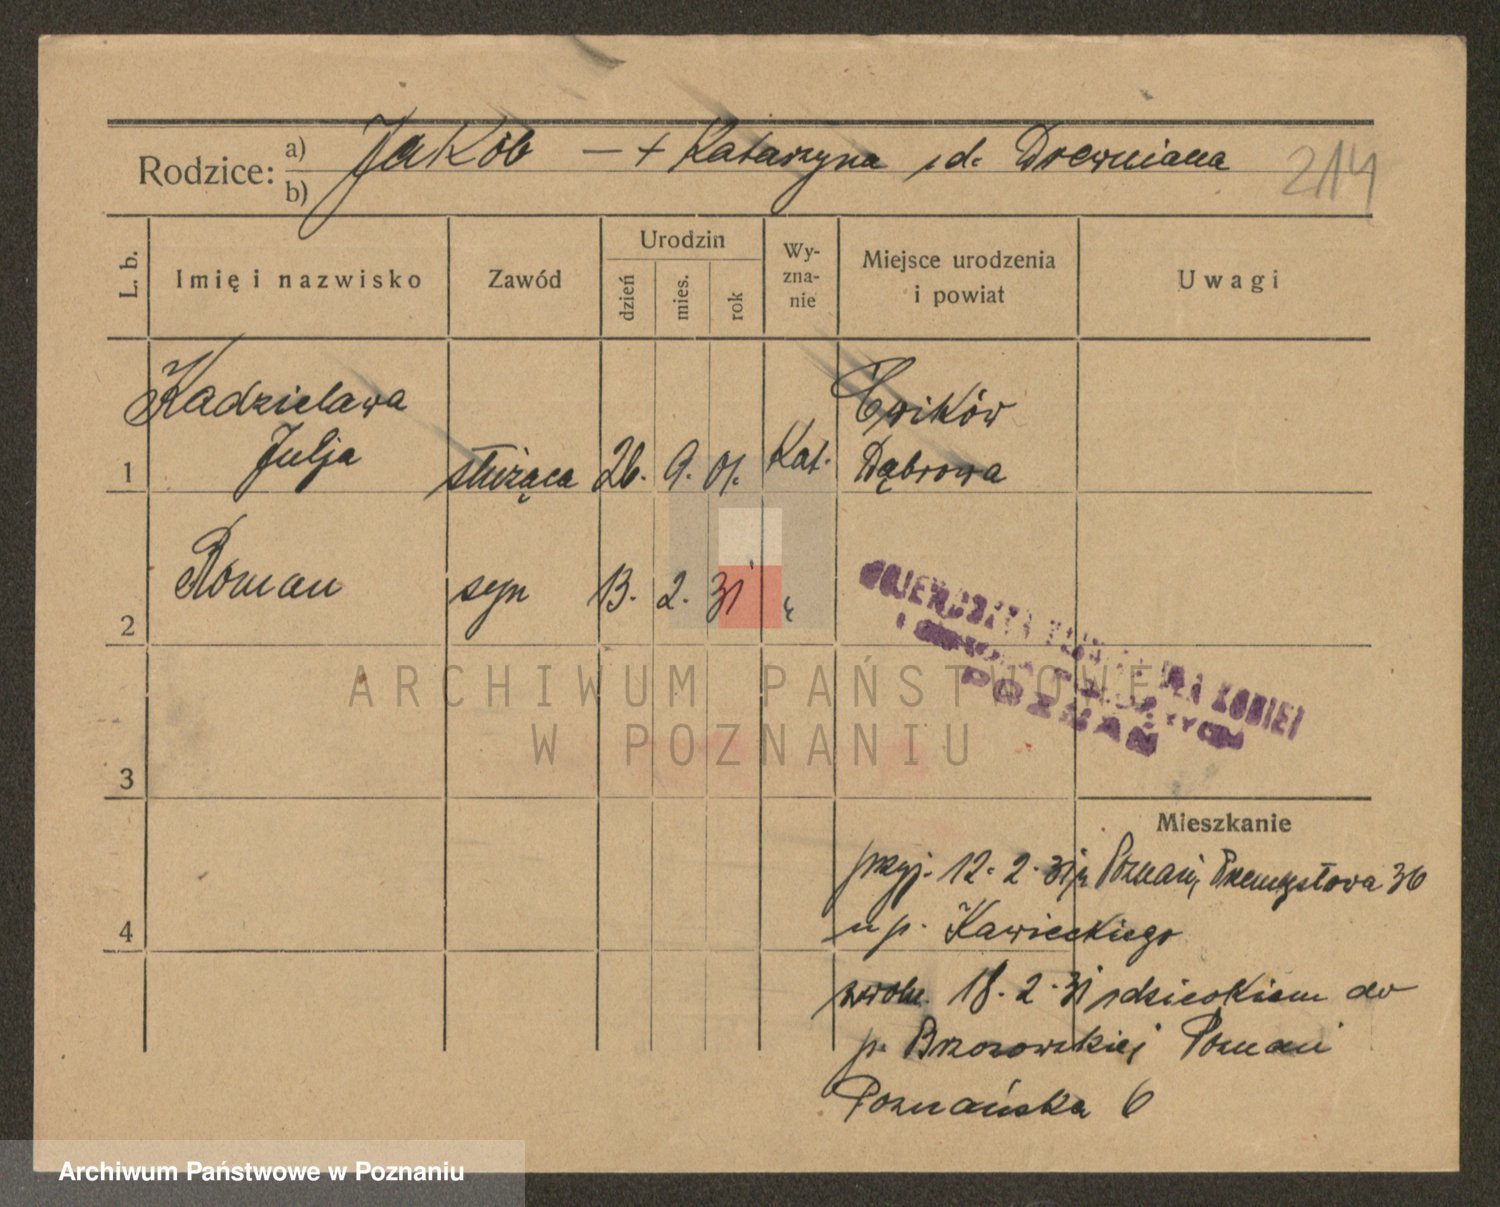 Rodzice: a) Jakób — + Katarzyna z d. Drewniana
b)
214
L. b. Imię i nazwisko Zawód Urodzin dzień mies. rok Wyznanie Miejsce urodzenia i powiat Uwagi
Kadzielawa Ćwików
1 Julja służąca 26. 9. 01. Kat. Dąbrowa
2 Roman syn 13. 2. 31 "
KOBIET
POZNAŃ
3
Mieszkanie
przyj. 12. 2. 31 z Poznań, Przemysłowa 36
4 u p. Kawieckiego
zwoln. 18. 2. 31 z dzieckiem do
p. Brzozowskiej Poznań
Poznańska 6
ARCHIWUM PAŃSTWOWE
W POZNANIU
Archiwum Państwowe w Poznaniu